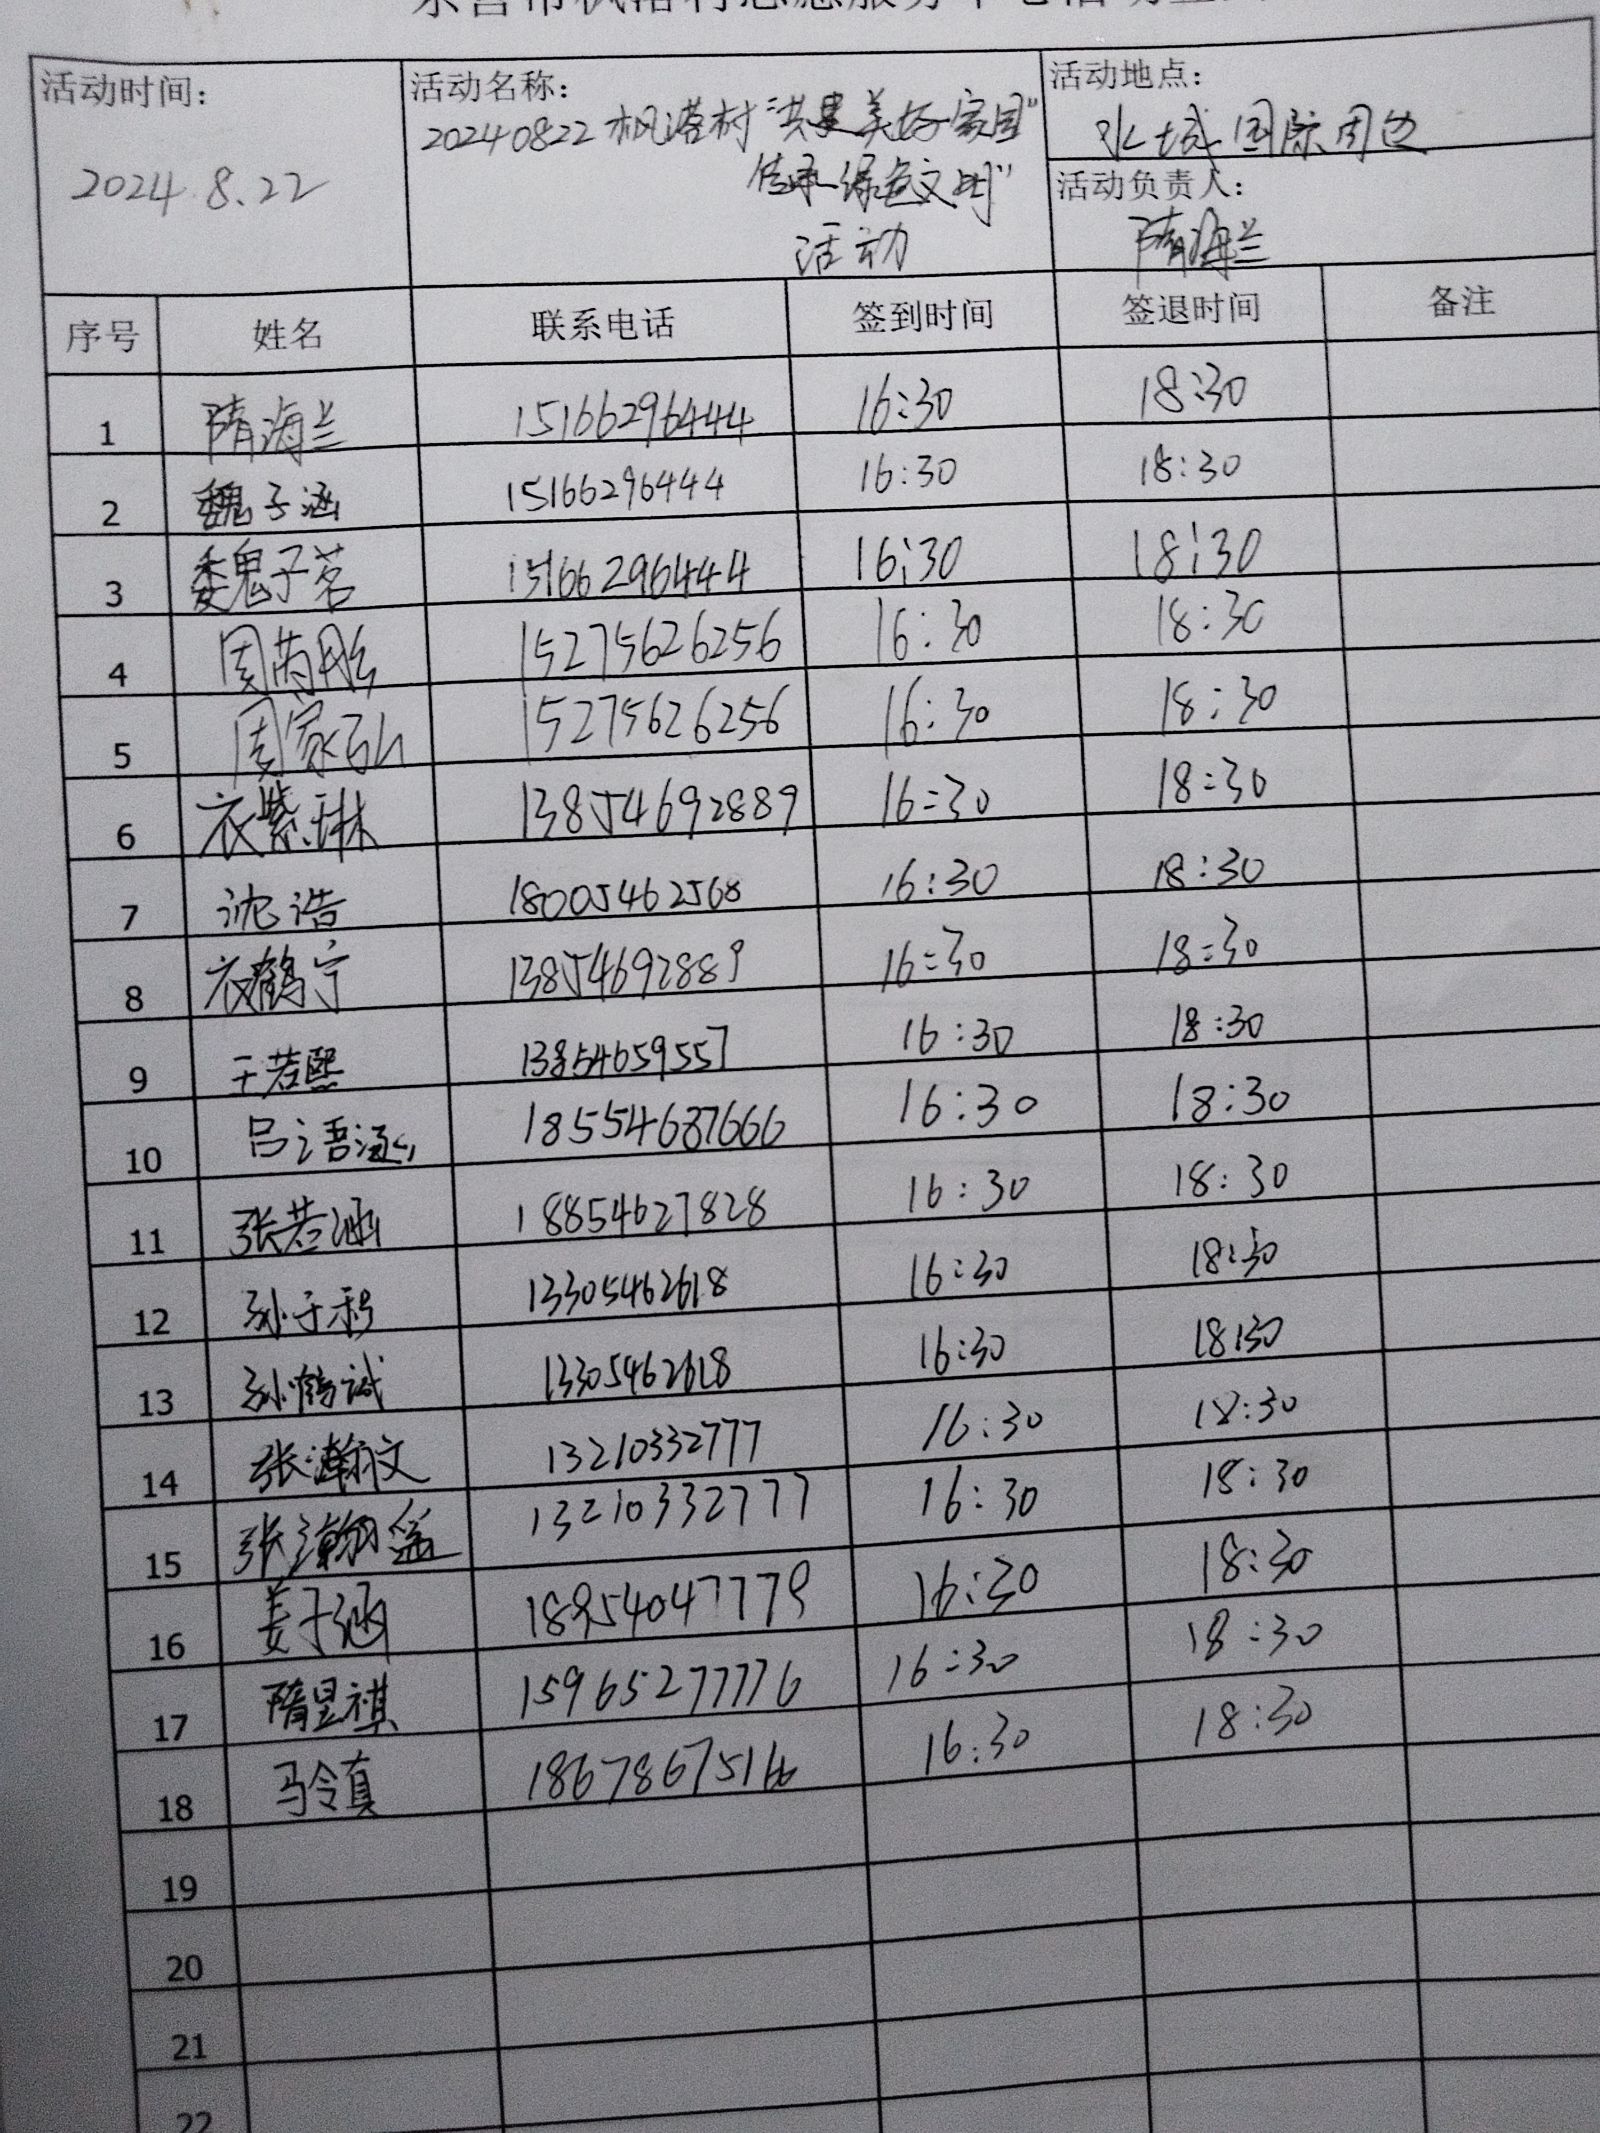 活动时间： 活动名称： 活动地点：
20240822枫落村"共建美好家园" 水城国际周边
2024.8.22 传承绿色文明" 活动负责人：
活动 隋海兰
序号 姓名 联系电话 签到时间 签退时间 备注
1 隋海兰 15166296444 16:30 18:30
2 魏子涵 15166296444 16:30 18:30
3 魏子茗 15166296444 16:30 18:30
4 周芮 15275626256 16:30 18:30
5 周家弘 15275626256 16:30 18:30
6 衣紫琳 13854692889 16:30 18:30
7 沈浩 18005462568 16:30 18:30
8 衣鹤宁 13854692889 16:30 18:30
9 王若熙 13854659557 16:30 18:30
10 吕语涵 18554687666 16:30 18:30
11 张若涵 18854627828 16:30 18:30
12 孙于 13305462618 16:30 18:30
13 孙鹤诚 13305462618 16:30 18:30
14 张瀚文 13210332777 16:30 18:30
15 张瀚 13210332777 16:30 18:30
16 姜子涵 18954047779 16:30 18:30
17 隋昱祺 15965277776 16:30 18:30
18 马令真 18678675166 16:30 18:30
19
20
21
22